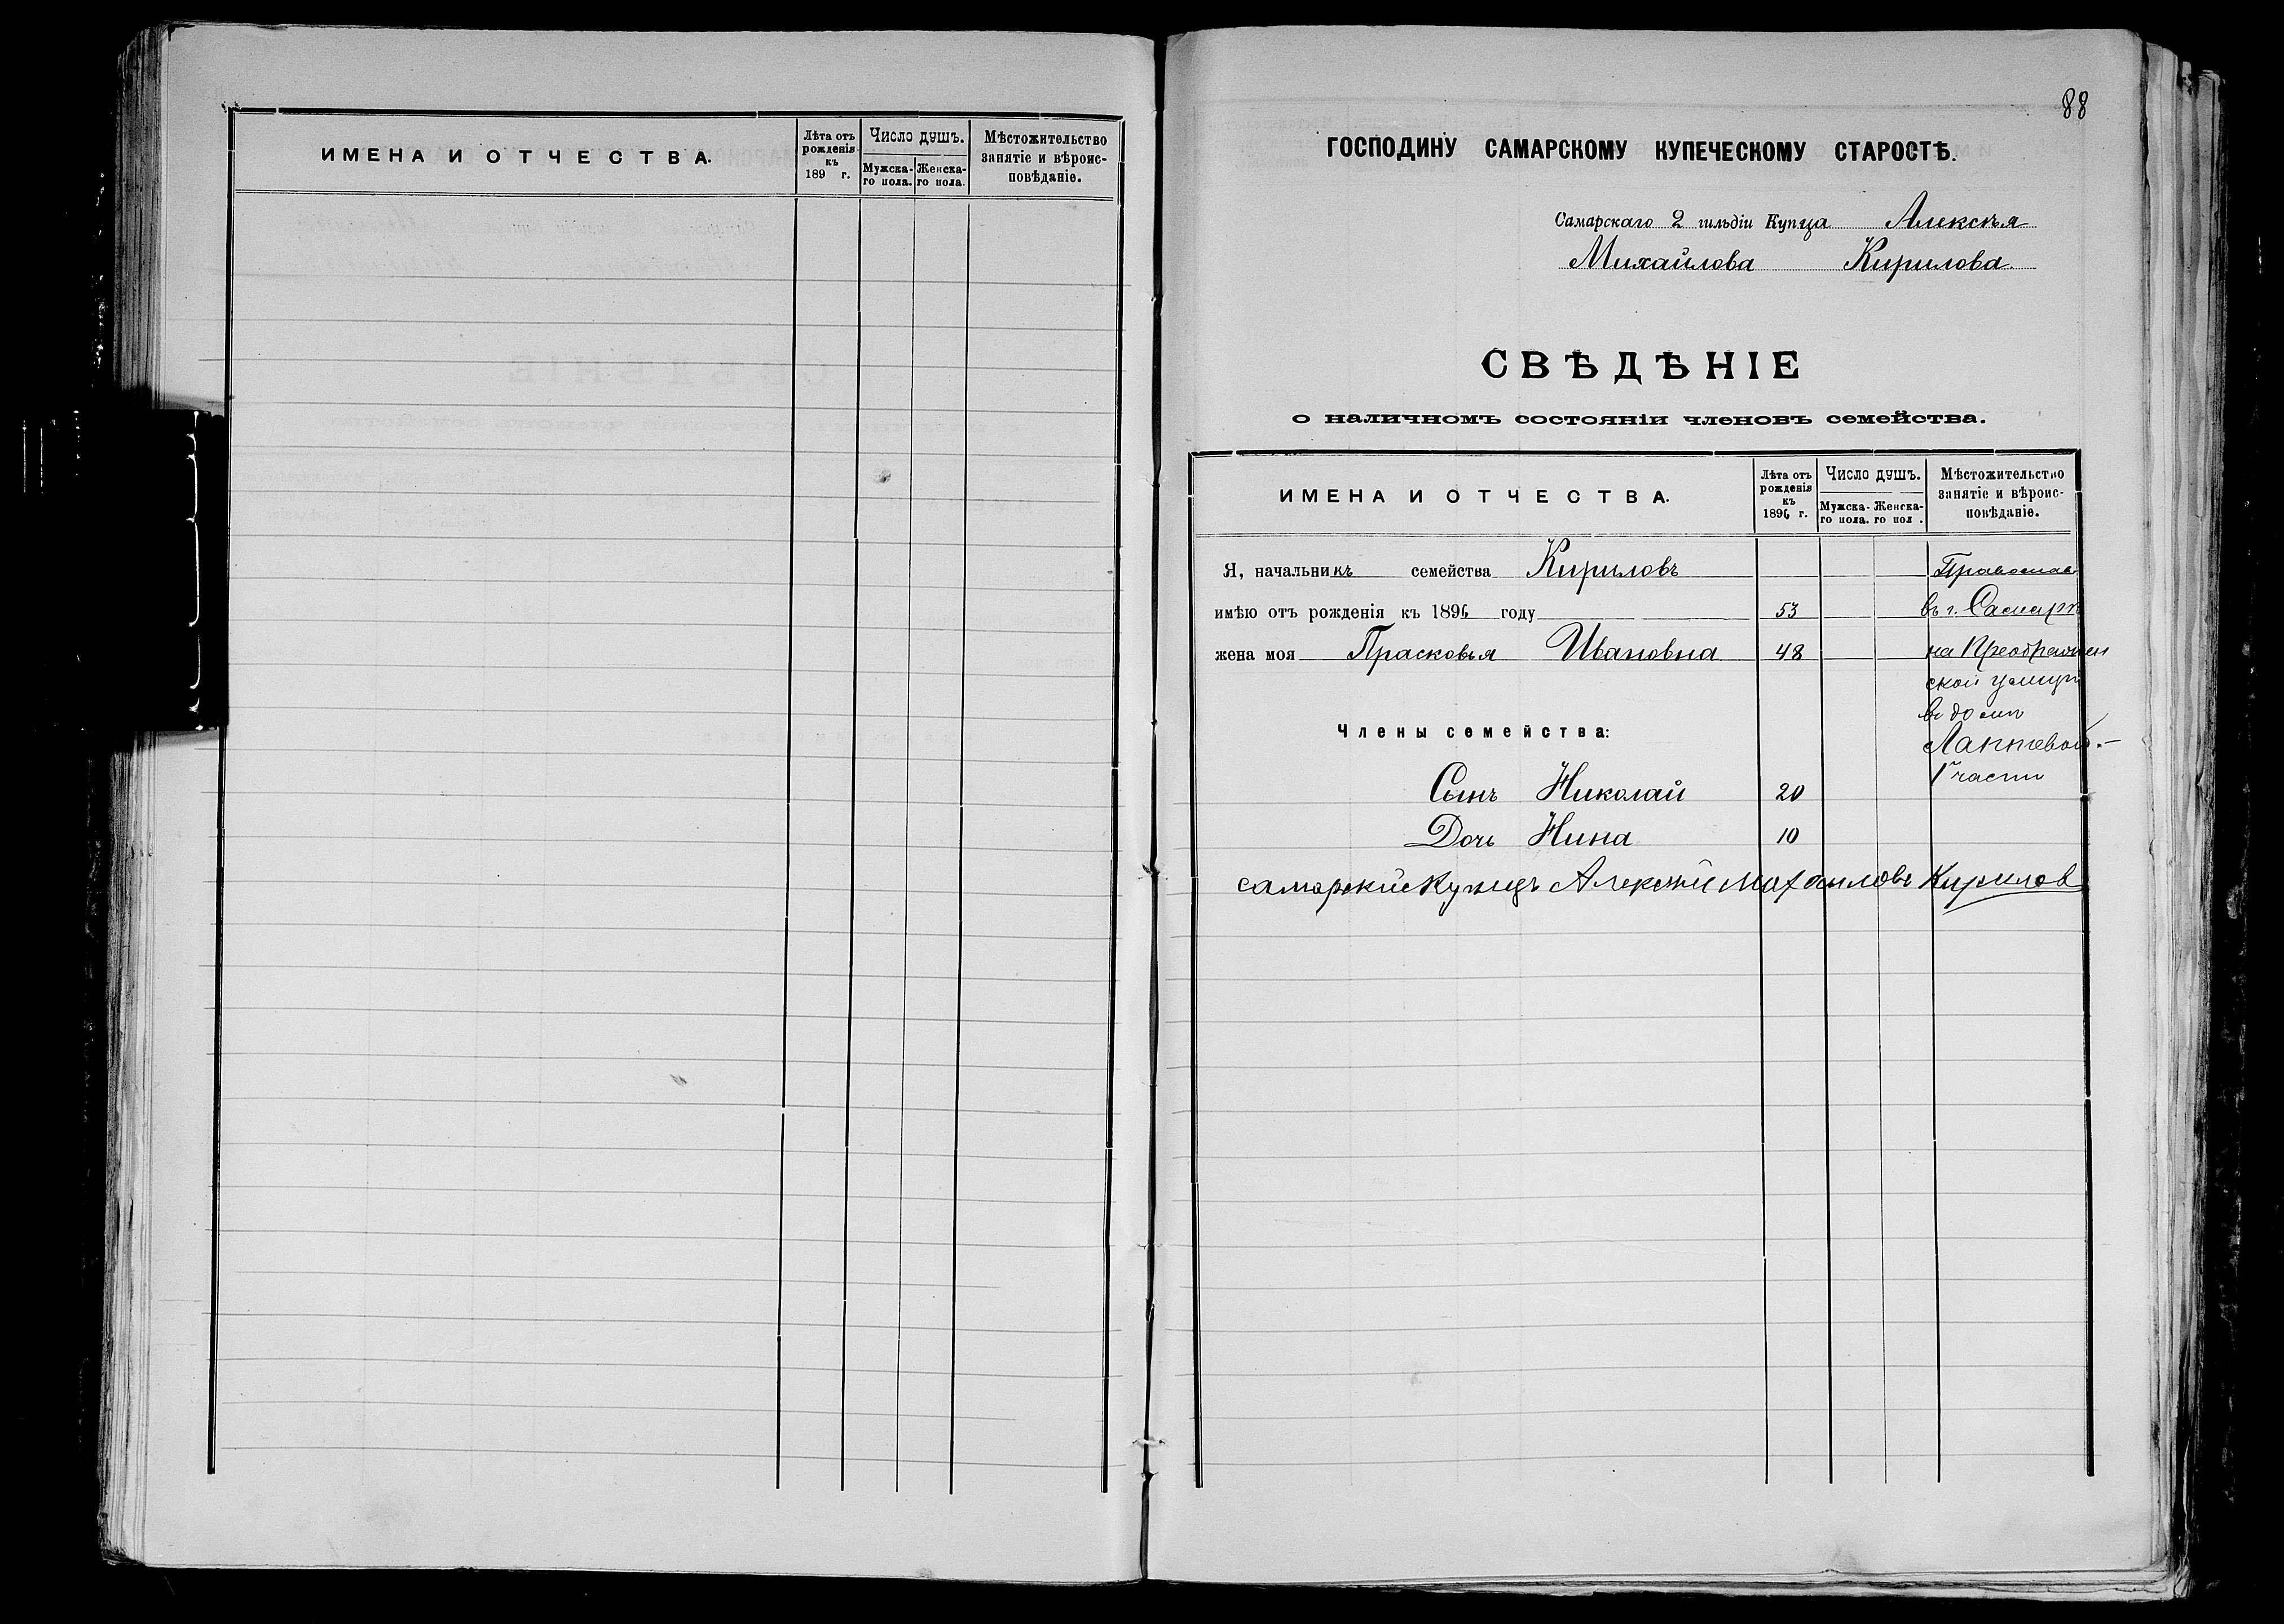 ИМЕНА И ОТЧЕСТВА.
Лѣта отъ рожденія къ 189 г.
Число душъ.
Мужска-го пола.
Женска-го пола.
Мѣстожительство занятіе и вѣроис-повѣданіе.
88
ГОСПОДИНУ САМАРСКОМУ КУПЕЧЕСКОМУ СТАРОСТѢ.
Самарскаго 2 гильдіи Купца Алексѣя
Михайлова Кирилова.
СВѢДѢНІЕ
о наличномъ состояніи членовъ семейства.
ИМЕНА И ОТЧЕСТВА.
Лѣта отъ рожденія къ 1896 г.
Число душъ.
Мужска-го пола.
Женска-го пол .
Мѣстожительство занятіе и вѣроис-повѣданіе.
Я, начальникъ семейства Кириловъ Православ
имѣю отъ рожденія къ 1896 году 53 въ г. Самарѣ
жена моя Прасковья Ивановна 48 на Преображен
ской улицѣ
въ домѣ
Члены семейства:
Лаптевой.—
1 части
Сынъ Николай 20
Дочь Нина 10
самарскій Купецъ Алексѣй Михаиловъ Кирилов